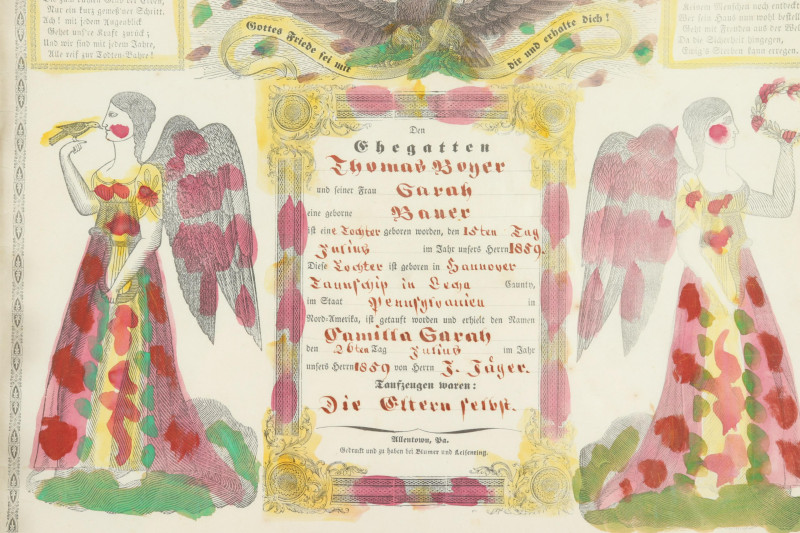 Nur ein kurz gemess'ner Schritt.
Ach! mit jedem Augenblick
Gehet uns're Kraft zurück;
Und wir sind mit jedem Jahre,
Alle reif zur Todten-Bahre!
Gottes Friede sei mit dir und erhalte dich!
Wer sein Haus nun wohl bestellt
Geht mit Freuden aus der Welt
Da die Sicherheit hingegen,
Ewig's Sterben kann erregen.
Den
Ehegatten
Thomas Boyer
und seiner Frau Sarah
eine geborne Bauer
ist eine Tochter geboren worden, den 15ten Tag
Julius im Jahr unsers Herrn 1859.
Diese Tochter ist geboren in Hannover
Taunschip in Lecha Caunty,
im Staat Pennsylvanien in
Nord-Amerika, ist getauft worden und erhielt den Namen
Camilla Sarah
den 26ten Tag Julius im Jahr
unsers Herrn 1859 von Herrn J. Jäger.
Taufzeugen waren:
Die Eltern selbst.
Allentown, Pa.
Gedruckt und zu haben bei Blumer und Leisenring.